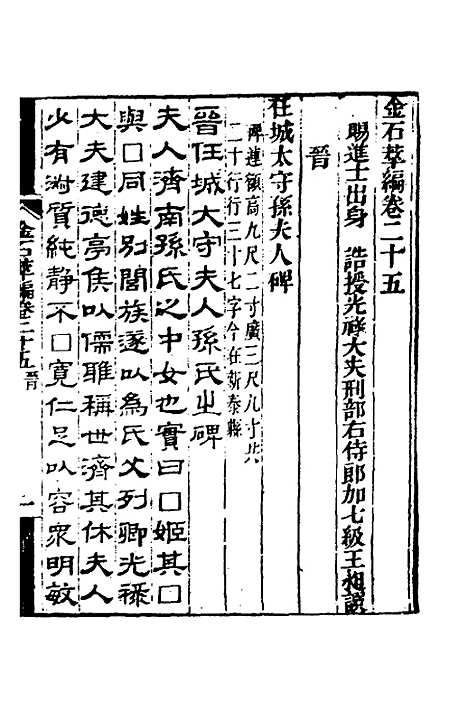 金石萃編卷二十五
賜進士出身 誥授光祿大夫刑部右侍郎加七級王昶譔
晉
任城太守孫夫人碑
碑連額高九尺二寸廣三尺八寸共
二十行行三十七字今在新泰縣
晉任城大守夫人孫氏之碑
夫人濟南孫氏之中女也實曰□姬其□
與□同姓別閏族遂以為氏父列卿光祿
大夫建德亭侯以儒雅稱世濟其休夫人
少有淑質純静不□寬仁足以容眾明敏
金石萃編卷二十五 晉
一